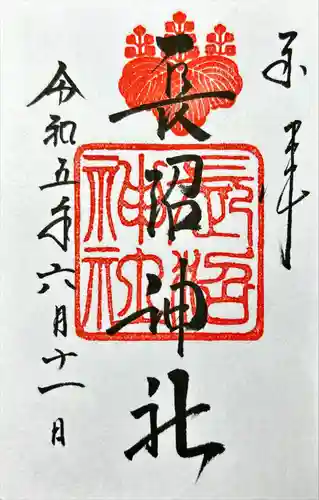 奉拝
長沼神社
長沼神社
令和五年六月十一日